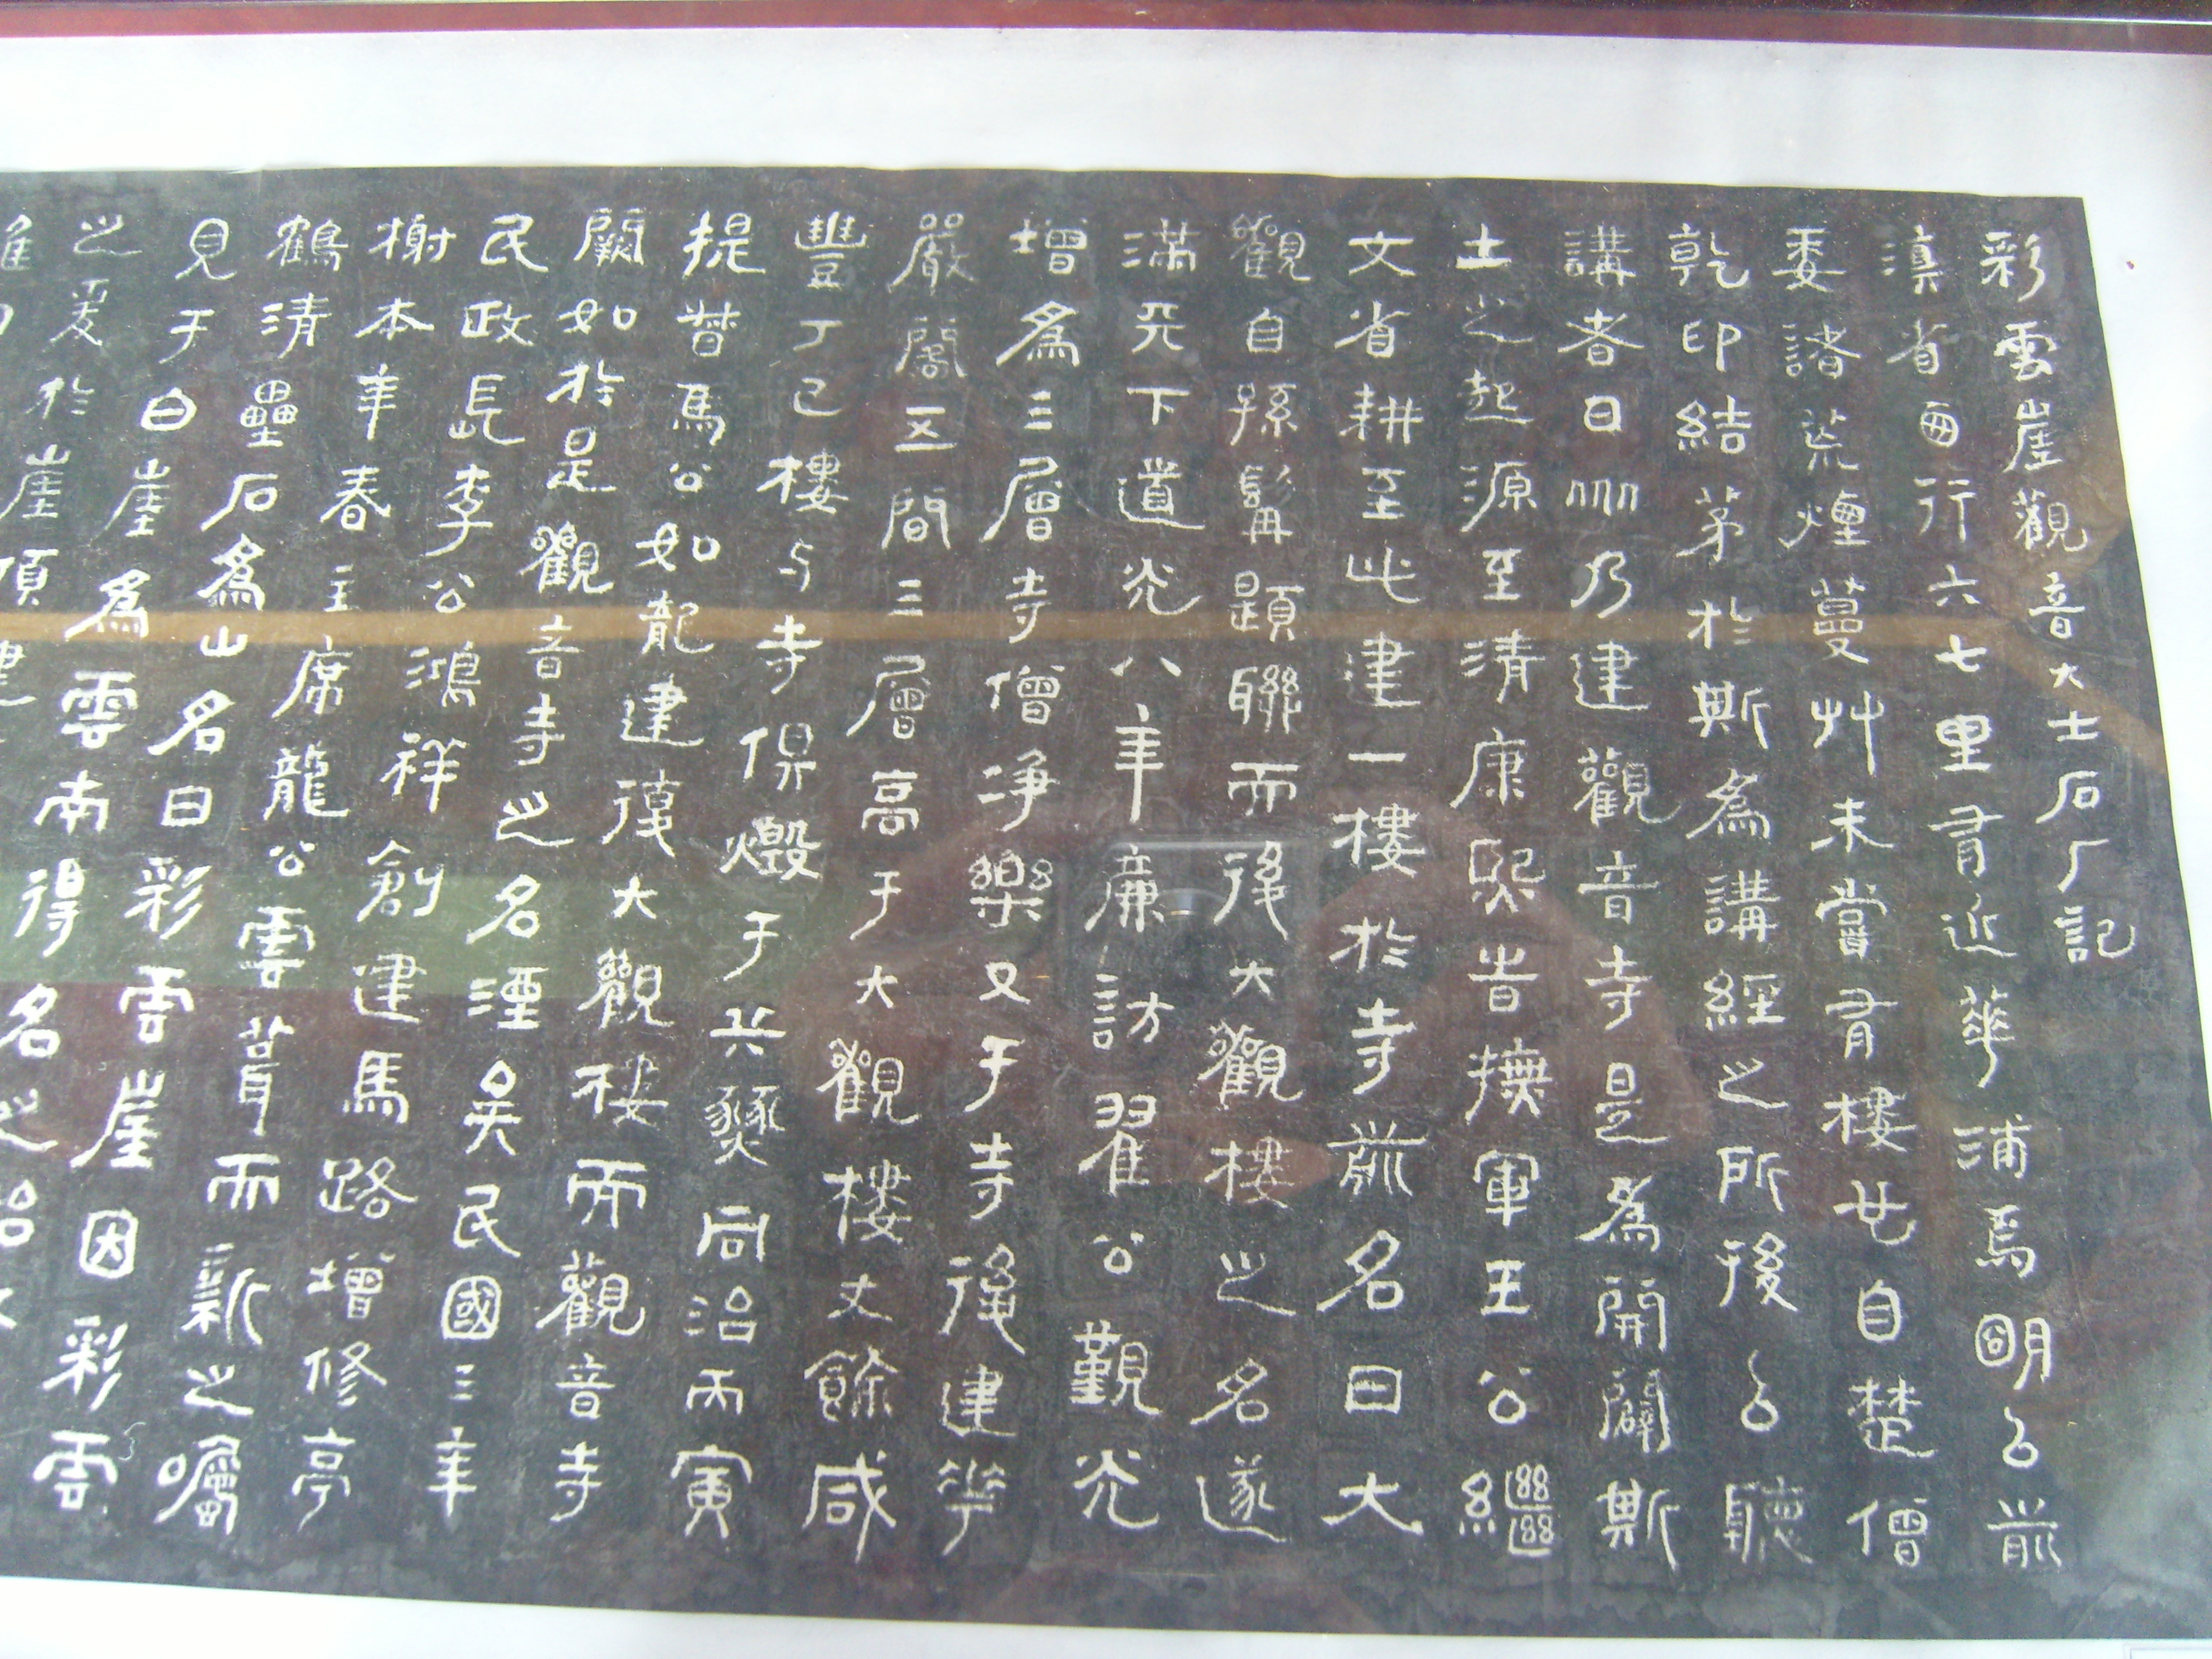 彩雲崖觀音大士石厂記
滇省西行六七里有近華浦焉明㠯前
委諸荒煙蔓艸未嘗有樓也自楚僧
乾印結茅於斯爲講經之所後㠯聽
講者日眾乃建觀音寺是爲開闢斯
土之起源至清康熙時撫軍王公繼
文省耕至此建一樓於寺前名曰大
觀自孫髯題聯而後大觀樓之名遂
滿天下道光八年廉訪翟公觀光
增爲三層寺僧淨樂又于寺後建華
嚴閣五間三層高于大觀樓丈餘咸
豐丁巳樓与寺俱燬于兵燹同治丙寅
提督馬公如龍建復大觀樓而觀音寺
闕如於是觀音寺之名湮矣民國三年
民政長李公鴻祥創建馬路增修亭
榭本年春主席龍公雲葺而新之囑
鶴清壘石爲山名曰彩雲崖因彩雲
見于白崖爲雲南得名之
之爰於崖頂建